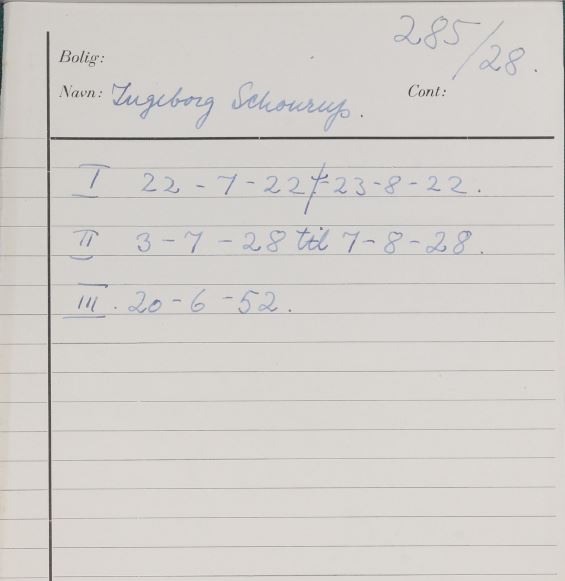 285/28.
Bolig:
Navn: Ingeborg Schourup. Cont:
I 22-7-22 t 23-8-22.
II 3-7-28 til 7-8-28.
III. 20-6-52.